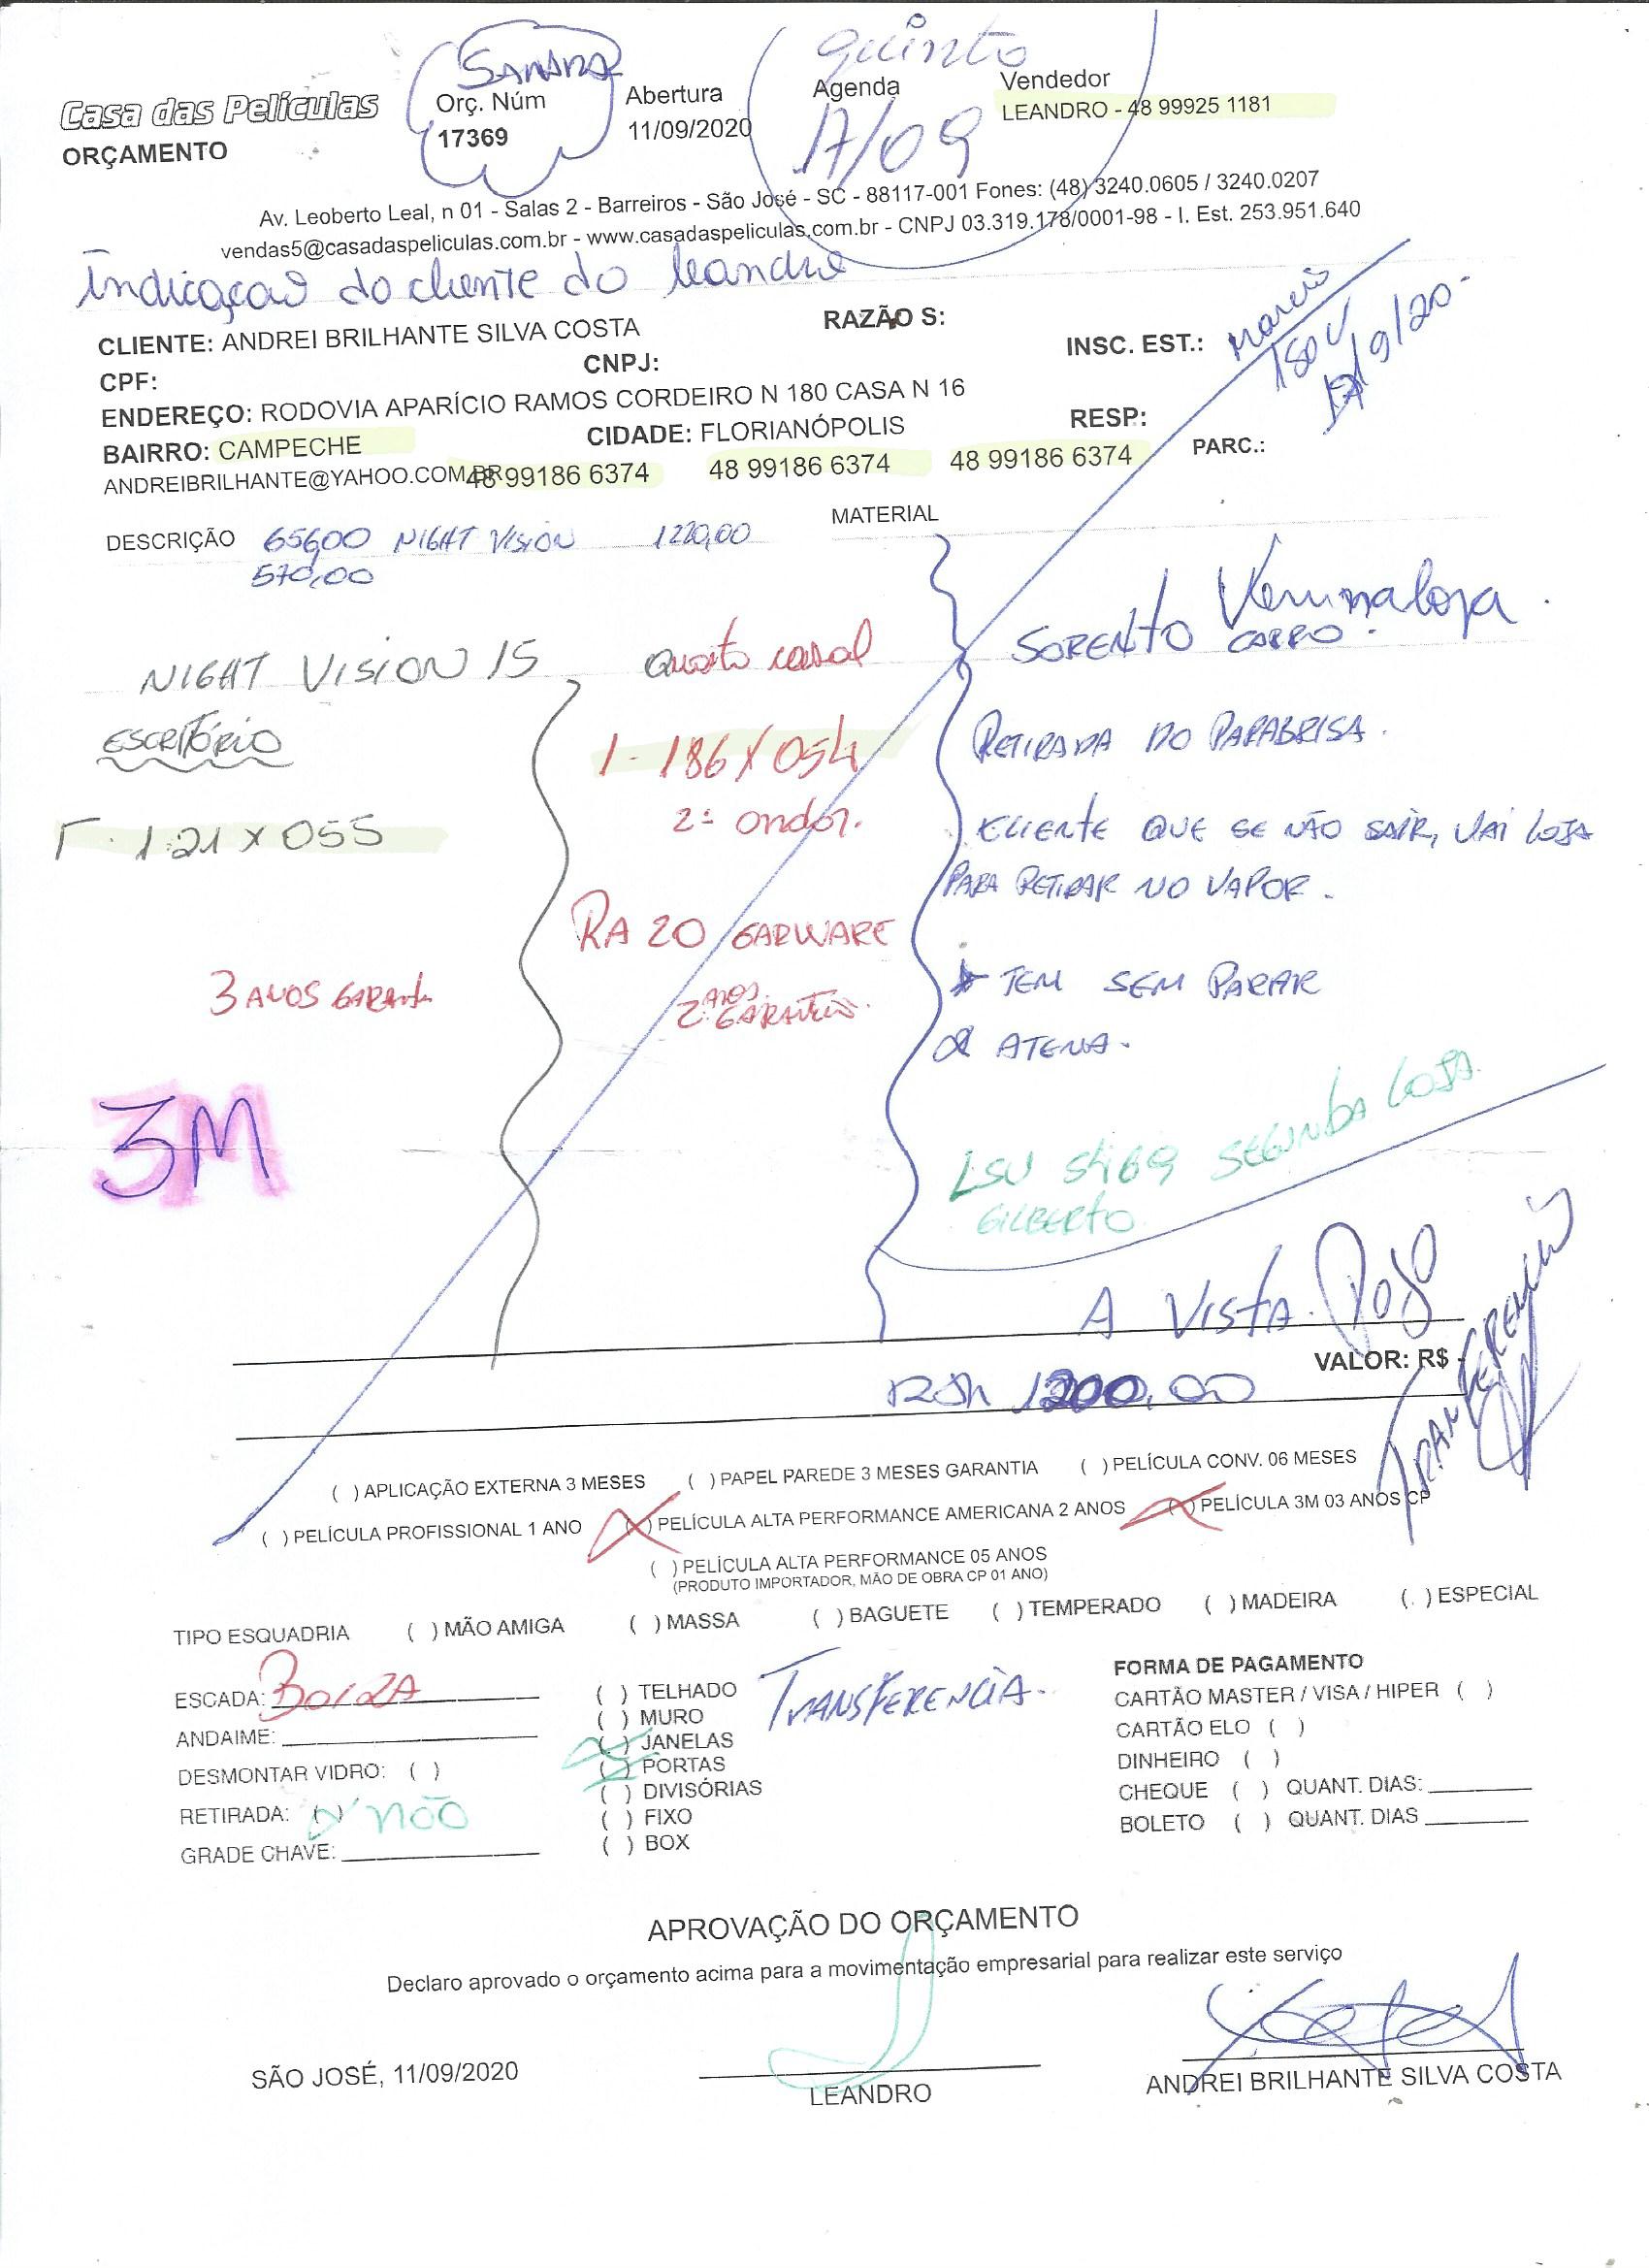 quinta
SANDRA
Casa das Películas
ORÇAMENTO
Orç. Núm
17369
Abertura
11/09/2020
Agenda
17/09
Vendedor
LEANDRO - 48 99925 1181
Av. Leoberto Leal, n 01 - Salas 2 - Barreiros - São José - SC - 88117-001 Fones: (48) 3240.0605 / 3240.0207
vendas5@casadaspeliculas.com.br - www.casadaspeliculas.com.br - CNPJ 03.319.178/0001-98 - I. Est. 253.951.640
Indicaçao do cliente do leandro
CLIENTE: ANDREI BRILHANTE SILVA COSTA
RAZÃO S:
CPF:
CNPJ:
INSC. EST.:
Marcio
17/9/20
ENDEREÇO: RODOVIA APARÍCIO RAMOS CORDEIRO N 180 CASA N 16
BAIRRO: CAMPECHE
CIDADE: FLORIANÓPOLIS
RESP:
PARC.:
ANDREIBRILHANTE@YAHOO.COM.BR
48 99186 6374
48 99186 6374
48 99186 6374
DESCRIÇÃO
NIGHT VISION 1220,00
570,00
MATERIAL
NIGHT VISION 15
ESCRITÓRIO
1.21 X 055
3 ANOS GARANTIA
3M
Quarto casal
1 - 186 X 054
2º andar.
RA 20 GARWARE
2 ANOS
GARANTIA.
Vem na loja.
SORENTO CARRO.
RETIRADA DO PARABRISA.
CLIENTE QUE SE NÃO SAIR, VAI LOJA
PARA RETIRAR NO VAPOR.
* TEM SEM PARAR
ATENA.
SEGUNDA LOJA
GILBERTO
A VISTA. Pago
TRANSFERENCIA
VALOR: R$ -
1200,00
( ) APLICAÇÃO EXTERNA 3 MESES ( ) PAPEL PAREDE 3 MESES GARANTIA ( ) PELÍCULA CONV. 06 MESES
( ) PELÍCULA PROFISSIONAL 1 ANO (X) PELÍCULA ALTA PERFORMANCE AMERICANA 2 ANOS (X) PELÍCULA 3M 03 ANOS CP
( ) PELÍCULA ALTA PERFORMANCE 05 ANOS
(PRODUTO IMPORTADOR, MÃO DE OBRA CP 01 ANO)
TIPO ESQUADRIA ( ) MÃO AMIGA ( ) MASSA ( ) BAGUETE ( ) TEMPERADO ( ) MADEIRA ( ) ESPECIAL
ESCADA:
ANDAIME:
DESMONTAR VIDRO: ( )
RETIRADA: (X) NÃO
GRADE CHAVE:
( ) TELHADO
( ) MURO
(X) JANELAS
(X) PORTAS
( ) DIVISÓRIAS
( ) FIXO
( ) BOX
TRANSFERENCIA.
FORMA DE PAGAMENTO
CARTÃO MASTER / VISA / HIPER ( )
CARTÃO ELO ( )
DINHEIRO ( )
CHEQUE ( ) QUANT. DIAS:
BOLETO ( ) QUANT. DIAS
APROVAÇÃO DO ORÇAMENTO
Declaro aprovado o orçamento acima para a movimentação empresarial para realizar este serviço
SÃO JOSÉ, 11/09/2020
LEANDRO
ANDREI BRILHANTE SILVA COSTA